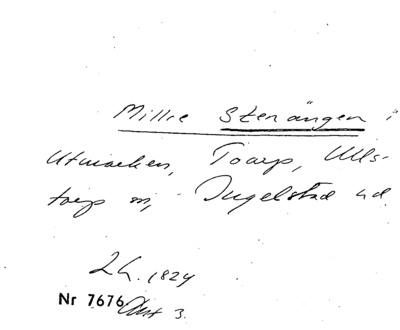 Millre Stenängen i
Utmarken, Toarp, Ulls-
torp sn, Ingelstad hd.
L. 1824
Nr 7676 Akt 3.